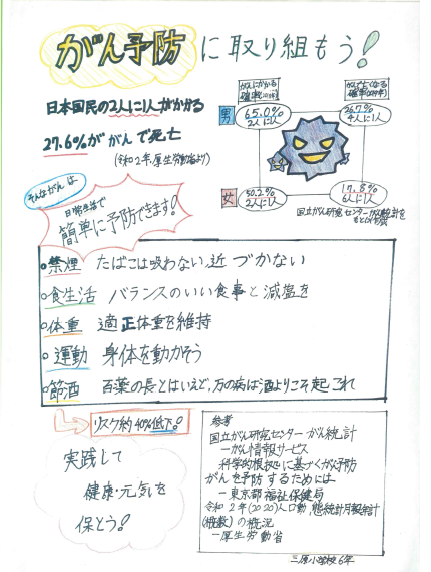 がん予防に取り組もう！
日本国民の2人に1人がかかる
27.6%ががんで死亡
(令和2年厚生労働省より)
がんにかかる
確率
がんで亡くなる
確率
男
65.0%
2人に1人
26.7%
4人に1人
女
50.2%
2人に1人
17.8%
6人に1人
国立がん研究センターがん統計を
もとに作成
そんながんは
日常生活で
簡単に予防できます！
禁煙 たばこは吸わない、近づかない
食生活 バランスのいい食事と減塩を
体重 適正体重を維持
運動 身体を動かそう
節酒 百薬の長とはいえど、万の病は酒よりこそ起これ
リスク約40%低下!
実践して
健康・元気を
保とう！
参考
国立がん研究センターがん統計
ーがん情報サービス
科学的根拠に基づくがん予防
がんを予防するためには
ー東京都福祉保健局
令和2年(2020)人口動態統計月報年計
(概数)の概況
ー厚生労働省
三原小学校6年